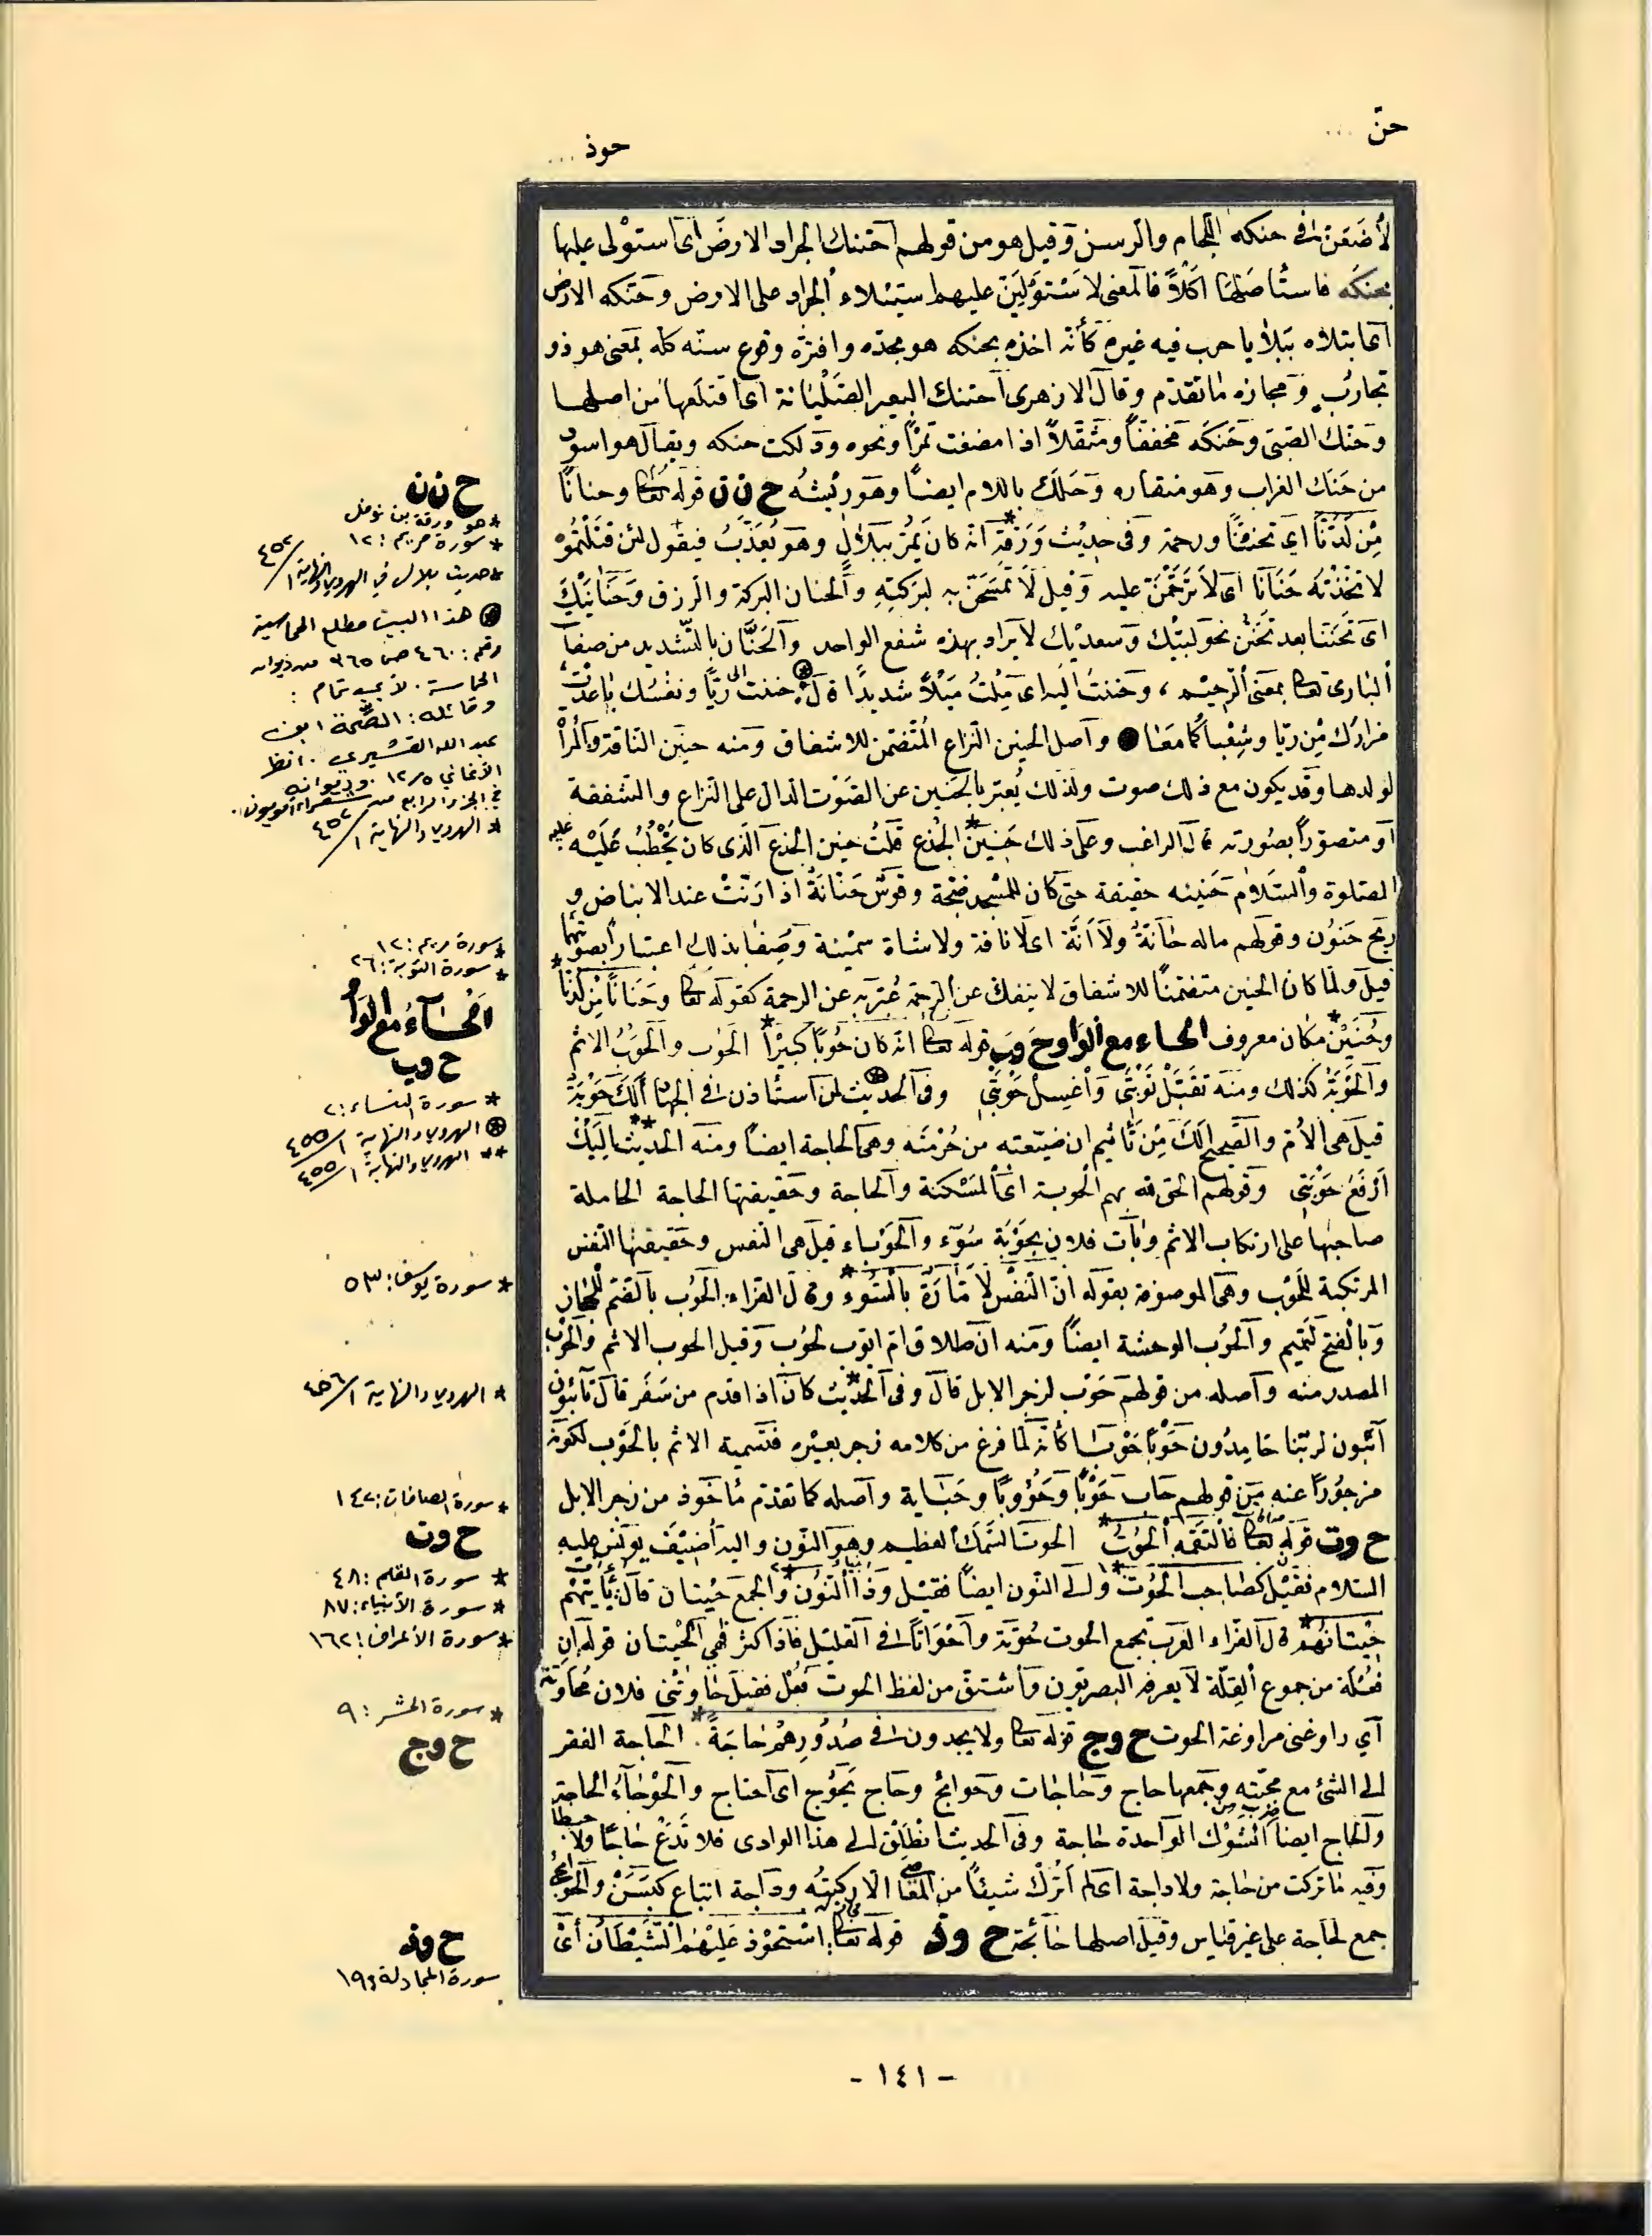 حنّ ...
حوذ ...
لأضعنّ في حنكه اللجام والرسن وقيل هو من قولهم احتنك الجراد الارض اى استولى عليها
بحنكه فاستأصلها اكلاً فالمعنى لاستولينّ عليهم استيلاء الجراد على الارض وحنكه
اى ابتلاه كأنه اخذه بحنكه هو مجذه وافتره وفرع سنّه كله بمعنى هو ذو
تجارب ومجازه ما تقدّم وقال الازهرى احتنك البعير الصّلّيانة اى اقتلعها من اصلها
وحنك الصّبىّ وحنّكه مخففاً ومثقّلاً اذا مضغت تمراً ونحوه ودلكت حنكه ويقال هو اسود
من حَنَك الغراب وهو منقاره وحَلَك باللام ايضاً وهو ريشه ح ن ن قوله تعالى وحناناً
مِنْ لَدُنّا اى تحنّناً ورحمة وفى حديث وَرَقة* انه كان يمرّ ببلال وهو يُعَذّب فيقول لئن قتلتموه
لاتخذنّه حَنَاناً اى لاترحّمنّ عليه وقيل لاتمسّحنّ به لبركته والحنان البركة والرزق وحَنَانَيْك
اى تحنّناً بعد تحنّن نحو لبّيك وسعديك لا يراد بهذه شفع الواحد والحَنّان بالتشديد من صفات
البارى تعالى بمعنى الرحيم، وحننت اليه اى ملت ميلاً شديداً قال حننت الى ريّا ونفسك باعدت
مزارك من ريّا وشعباكما معا وأصل الحنين النزاع المتضمّن للاشفاق ومنه حنين الناقة والمرأة
لولدها وقد يكون مع ذلك صوت ولذلك يُعبّر بالحنين عن الصّوت الدالّ على النزاع والشفقة
او متصوّراً بصورته قال الراغب وعلى ذلك حنين* الجذع قلت حنين الجذع الذى كان يخطب عليه عليه
الصلوة والسلام حنينه حقيقة حتى كان للمسجد ضجة وقوس حنّانة اذا رنّت عند الانباض و
ريح حنون وقولهم ماله حانّة ولا آنّة اى لا ناقة ولا شاة سمينة وصفا بذلك اعتباراً بصوتهما
قيل ولما كان الحنين متضمناً للاشفاق لا ينفك عن الرحمة عُبّر به عن الرحمة كقوله تعالى وحناناً من لدنّا*
وحُنَيْن* مكان معروف الحاء مع الواو ح وب قوله تعالى انه كان حُوباً كبيراً* الحَوب والحُوب الاثم
والحوبة كذلك ومنه تقبّل توبتى واغسل حوبتى وفى الحديث لمن استأذن فى الجهاد ألك حوبة
قيل هى الأم والصحيح الك من تأثيم ان ضيّعته من حُرْمَته وهى الحاجة ايضاً ومنه الحديث** اليك
ارفع حوبتى وقولهم الحق الله بهم الحوبة اى المسكنة والحاجة وحقيقتها الحاجة الحاملة
صاحبها على ارتكاب الاثم وبات فلان بحوبة سوء والحَوْباء قيل هى النفس وحقيقتها النفس
المرتكبة للحوب وهى الموصوفة بقوله انّ النفس لأمّارة بالسّوء* وقال الفراء الحوب بالضم للحجاز
وبالفتح لتميم والحوب الوحشة ايضاً ومنه ان طلاق ام ايوب لحوب وقيل الحوب الاثم والحوب
المصدر منه وأصله من قولهم حَوْب لزجر الابل قال وفى الحديث* كان اذا قدم من سفر قال تائبون
آئبون لربّنا حامدون حَوْباً حَوْباً كأنه لما فرغ من كلامه زجر بعيره فتسمية الاثم بالحوب لكونه
مزجوراً عنه من قولهم حاب حَوْباً وحُؤوباً وحِيَابة وأصله كما تقدّم مأخوذ من زجر الابل
ح وت قوله تعالى فالتقمه الحوت* الحوت السّمك العظيم وهو النّون واليه أضيف يونس عليه
السلام فقيل كصاحب الحوت* والى النّون ايضاً فقيل وذا النّون* والجمع حيتان قال تأتيهم
حيتانهم* قال الفراء العرب تجمع الحوت حُوتَة وأحواتاً فى القليل فاذا كثر فهى الحيتان قوله ان
فعلة من جموع القلّة لا يعرفه البصريون واشتق من لفظ الحوت فعل فقيل حاوتنى فلان محاوتة
اى راوغنى مراوغة الحوت ح وج قوله تعالى ولا يجدون فى صدورهم حاجة* الحاجة الفقر
الى الشئ مع محبّته وجمعها حاج وحاجات وحوائج وحاج يحوج اى احتاج والحوجاء الحاجة
والحاج ايضاً ضرب من الشوك الواحدة حاجة وفى الحديث انطلق الى هذا الوادى فلا تدع حاجاً ولا حطباً
وفيه ما تركت من حاجة ولا داجة اى لم اترك شيئاً من المعاصى الا ركبته وداجة اتباع كبسن والحوائج
جمع لحاجة على غير قياس وقيل اصلها حائجة ح وذ قوله تعالى استحوذ عليهم الشيطان أى
ح ن ن
* هو ورقة بن نوفل
* سورة مريم: ١٢
* حديث بلال في الهروي والنهاية ١/٤٥٢
هذا البيت مطلع الحماسية
رقم: ٤٦٠ ص ٣٦٥ من ديوان
الحماسة. لأبي تمام:
وقائله: الصِّمة ابن
عبد الله القشيري. انظر
الأغاني ٥/١٢. وديوانه
في الجزء الرابع من شعراء أمويون.
* الهروي والنهاية ١/٤٥٢
* سورة مريم: ١٢
* سورة التوبة: ٢٦
الحاء مع الواو
ح وب
* سورة النساء: ٢
الهروي والنهاية ١/٤٥٥
** الهروي والنهاية ١/٤٥٥
* سورة يوسف: ٥٣
* الهروي والنهاية ١/٤٥٦
* سورة الصافات: ١٤٢
ح وت
* سورة القلم: ٤٨
* سورة الأنبياء: ٨٧
* سورة الأعراف: ١٦٢
* سورة الحشر: ٩
ح وج
ح وذ
سورة المجادلة: ١٩
- ١٤١ -